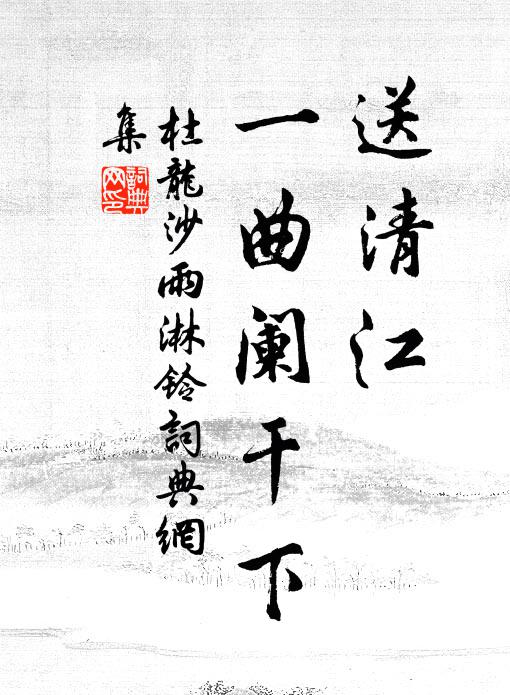 送清江
一曲阑干下
杜龍沙雨淋鈴詞典網
集
詞典
网印